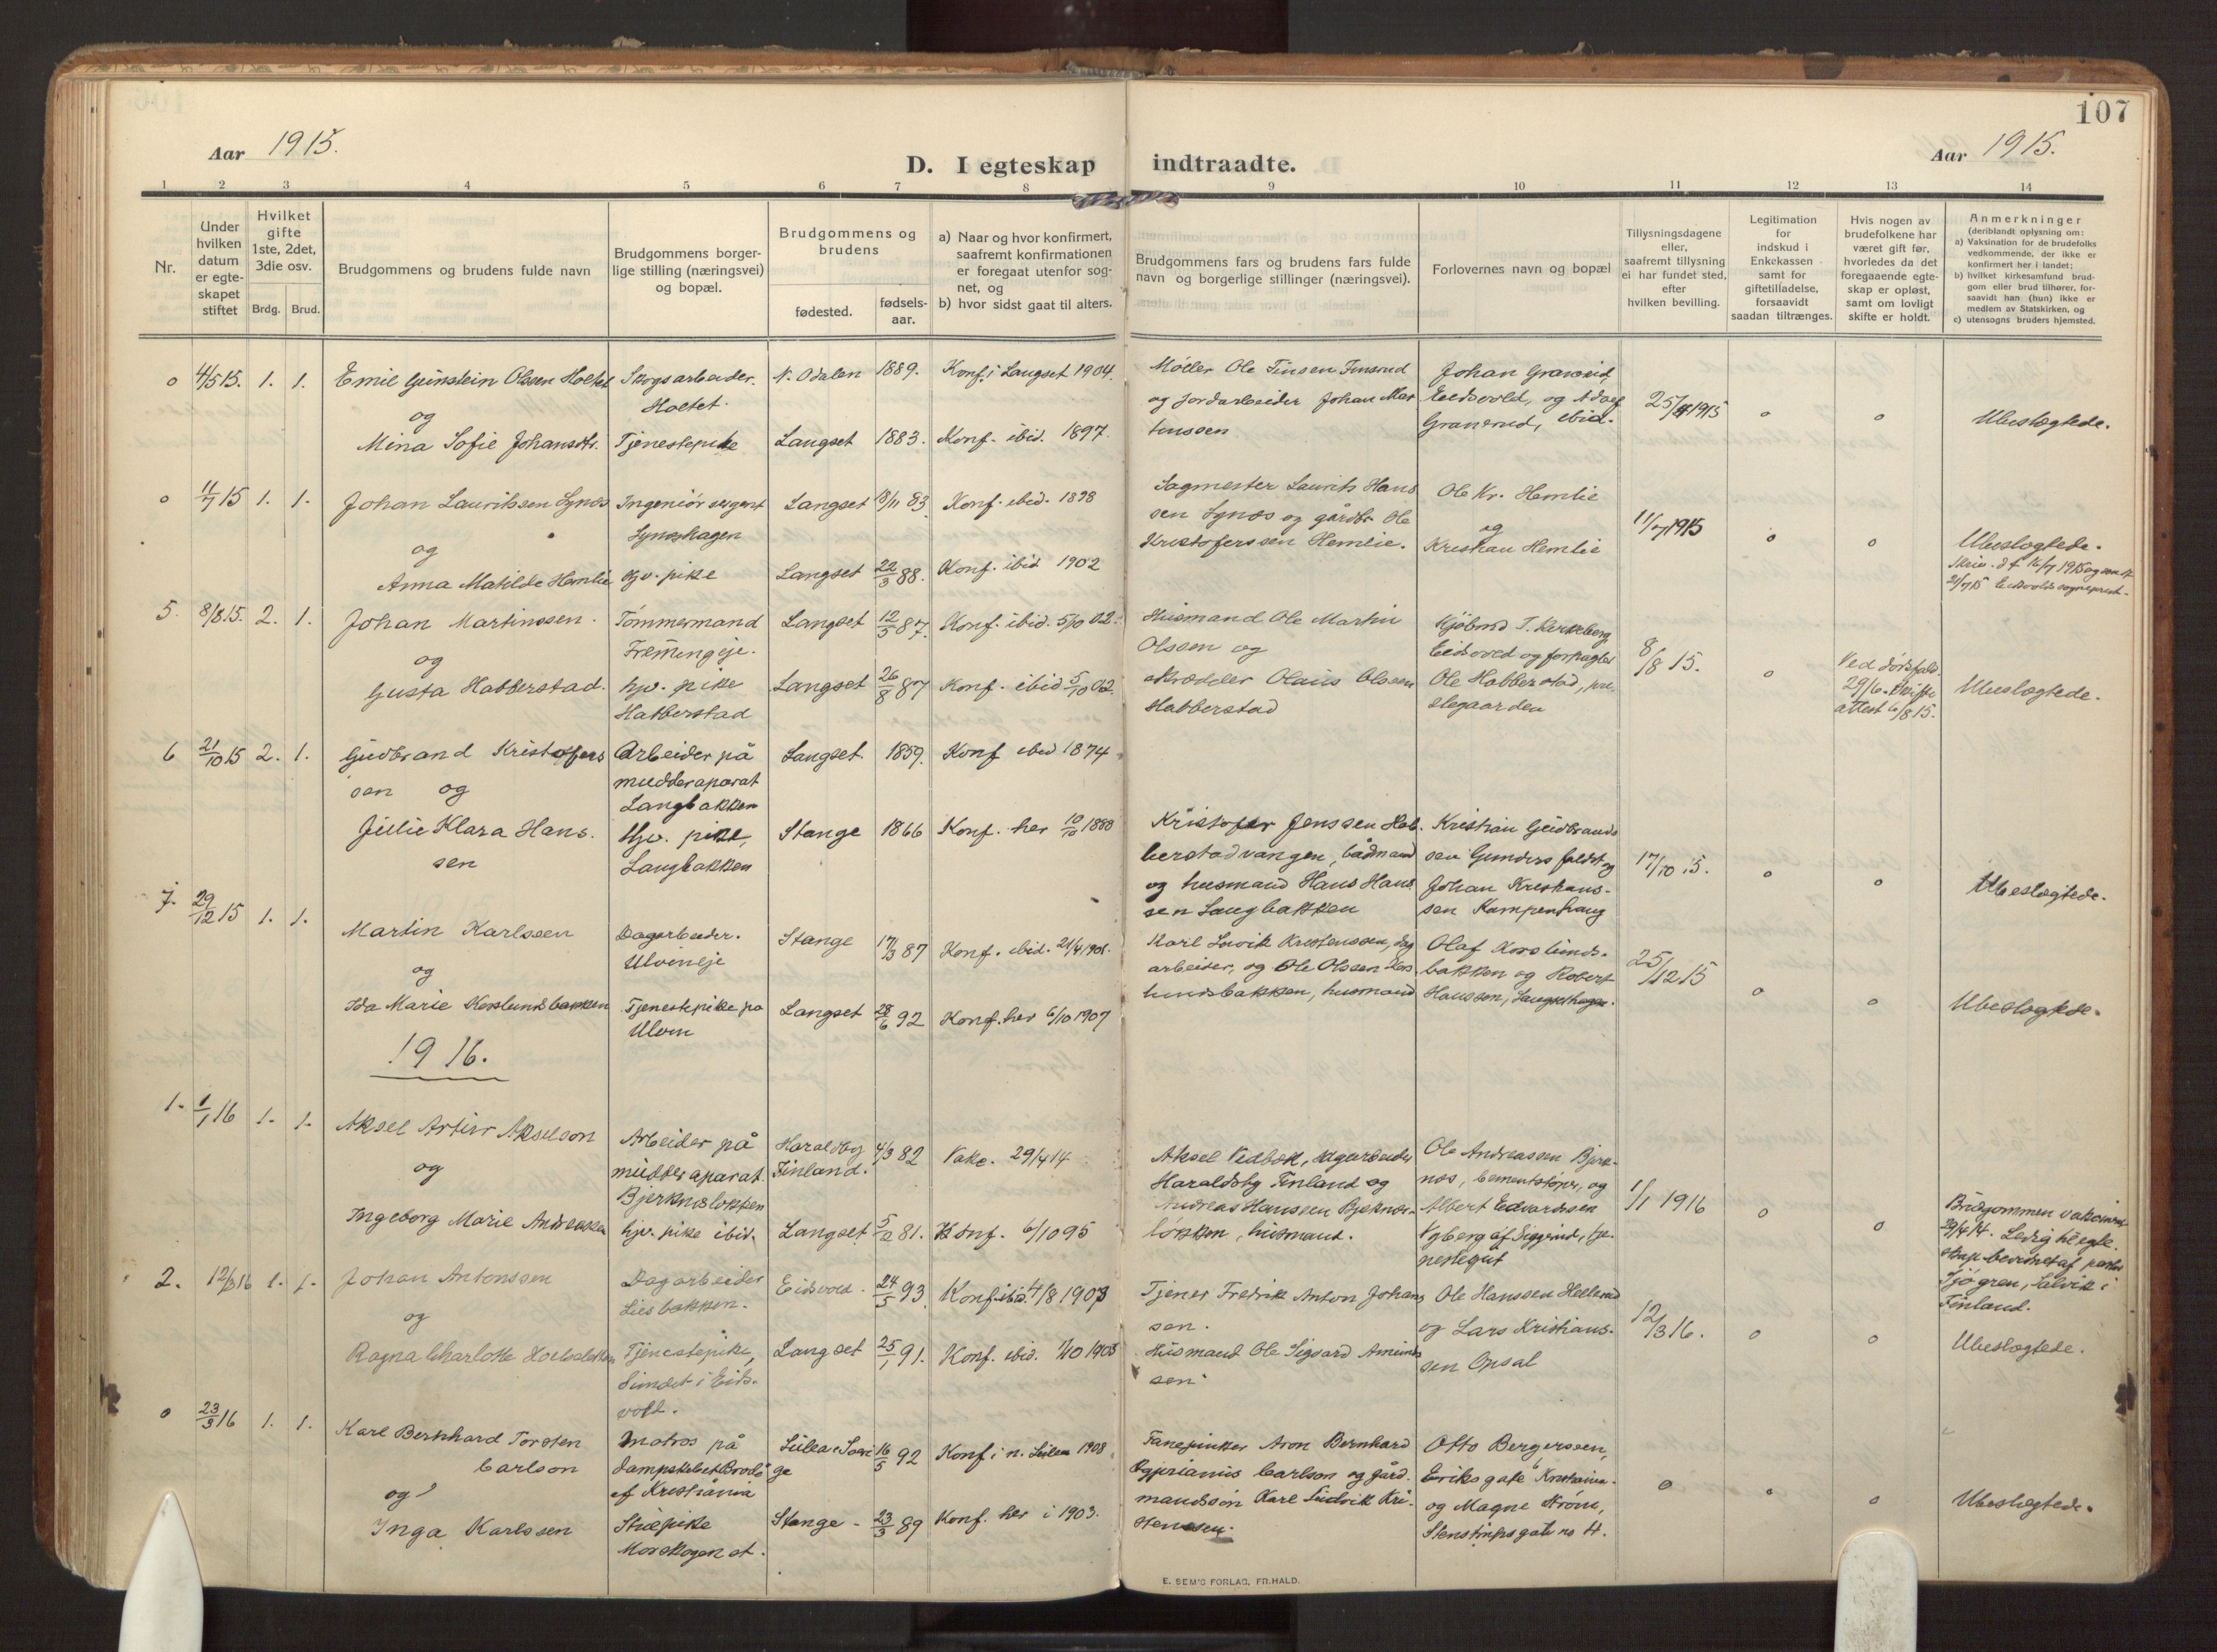 107
Aar 1915.
D. I egteskap indtraadte.
Aar 1915.
1 2 3 4 5 6 7 8 9 10 11 12 13 14
Nr.
Under hvilken datum er egte- skapet stiftet
Hvilket gifte 1ste, 2det, 3die osv.
Brdg. Brud.
Brudgommens og brudens fulde navn
Brudgommens borger- lige stilling (næringsvei) og bopæl.
Brudgommens og brudens
fødested.
fødsels- aar.
a) Naar og hvor konfirmert, saafremt konfirmationen er foregaat utenfor sog- net, og
b) hvor sidst gaat til alters.
Brudgommens fars og brudens fars fulde navn og borgerlige stillinger (næringsvei).
Forlovernes navn og bopæl
Tillysningsdagene eller, saafremt tillysning ei har fundet sted, efter hvilken bevilling.
Legitimation for indskud i Enkekassen samt for giftetilladelse, forsaavidt saadan tiltrænges.
Hvis nogen av brudefolkene har været gift før, hvorledes da det foregaaende egte- skap er opløst, samt om lovligt skifte er holdt.
Anmerkninger
(deriblandt oplysning om:
a) Vaksination for de brudefolks vedkommende, der ikke er konfirmert her i landet;
b) hvilket kirkesamfund brud- gom eller brud tilhører, for- saavidt han (hun) ikke er medlem av Statskirken, og
c) utensogns bruders hjemsted.
o 4/5 15. 1. 1. Emil Gunstein Olssen Holtet
og
Mina Sofie Johansdtr.
Skogsarbeider.
Holtet.
Tjenestepike
N. Odalen 1889. Konf. i Langset 1904.
Langset 1883. Konf. ibid. 1897.
Møller Ole Finsen Finsrud
og jordarbeider Johan Mar
tinssen
Johan Granerud,
Eidsvold, og Adolf
Granerud, ibid.
25/4 1915 o o Ubeslegtede.
o 11/7 15 1. 1. Johan Lauritssen Synes
og
Anna Matilde Hemlie
Ingeniørsergent
Syneshagen
hjv. pike
Langset 8/11 83. Konf. ibid. 1898
Langset 22/3 88. Konf. ibid 1902
Sagmester Laurits Hans
sen Synes og gårdbr. Ole
Kristofersen Hemlie.
Ole Kr. Hemlie
og
Kristian Hemlie
11/7 1915 o o Ubeslegtede.
5. 8/8 15. 2. 1. Johan Martinssen.
og
Gusta Habberstad.
Tømmermand
Fremingeje.
hjv. pike
Habberstad
Langset 12/5 87. Konf. ibid. 5/10 02.
Langset 26/8 87 Konf. ibid 5/10 02.
Husmand Ole Martin
Olssen og
skrædder Olaus Olssen
Habberstad
Kjøbmd T. Kirkeberg
Eidsvold og forpagter
Ole Habberstad, pre-
stegaarden
8/8 15. o
Ved dødsfald
29/6. Skifte
attest 6/8 15.
Ubeslegtede.
6 21/10 15 2. 1. Gudbrand Kristofers
sen og
Julie Klara Hans.
sen
Arbeider på
mudderaparat
Langbakken
Hjv. pike,
Langbakken
Langset. 1859. Konf ibid 1874
Stange 1866 Konf. her 10/10 1880
Kristofer Jenssen Hab.
berstadvangen, bådmand
og husmand Hans Hans
sen Langbakken
Kristian Gudbrands
sen Gunders faldet og
Johan Kristians-
sen Kampenhaug
17/10 15. o o Ubeslegtede.
7. 29/12 15 1. 1. Martin Karlssen
og
Ida Marie Korslundsbakken
Dagarbeider.
Ulvineje
Tjenestepike på
Ulvin
Stange 17/3 87 Konf. ibid. 21/4 1901.
Langset 28/6 92 Konf. her 6/10 1907
Karl Luvik Kristenssen, dag
arbeider, og Ole Olssen Kors
lundsbakken, husmand
Olaf Korslunds-
bakken og Robert
Hanssen, Langsethagen.
25/12 15 o o Ubeslegtede.
1916.
1. 1/1 16 1. 1. Aksel Artur Akselson
og
Ingeborg Marie Andreassen
Arbeider på
mudderaparat.
Bjerknesløkken
hjv. pike ibid.
Haraldsby
Finland.
4/3 82 Vakc. 29/4 14
Langset 5/12 81. Konf. 6/10 95
Aksel Vedbok, sagarbeider
Haraldsby Finland og
Andreas Hanssen Bjerknes-
løkken, husmand.
Ole Andreassen Bjerk-
nes, cementstøper, og
Albert Edvardssen
Nyberg af Siggerud, tje-
nestegut
1/1 1916 o o
Brudgommen vakcineret
29/4 14. Ledig til egte
skap bevidnet af pastor
Sjögren, Salvik i
Finland.
2. 12/3 16 1. 1. Johan Antonssen
og
Ragna Charlotte
Dagarbeider
Liesbakken.
Tjenestepike,
Sundet i Eids.
vold.
Eidsvold. 24/5 93. Konf. ibid. 4/8 1907
Langset 25/1 91. Konf. ibid. 1/10 1905
Tjener Fredrik Anton Johans
sen.
Husmand Ole Sigvard Amund
sen
Ole Hanssen Hellerud
og Lars Kristians-
sen Opsal
12/3 16. o o Ubeslegtede.
o 23/3 16 1. 1. Karl Bernhard Torsten
Carlson
og
Inga Karlssen
Matros på
dampskibet
af Kristiania
Stuepike
Morskogen st.
16/5 92 Konf i n. 1908
Stange - 23/3 89 Konf. her i 1903.
Aron Bernhard
Carlson og gård.
mandssøn Karl Ludvik Kri.
stenssen.
Otto Bergerseen,
Eriks gate Kristiania.
og Magne Strøm,
Stenstrups gate no 4.
o o o Ubeslegtede.
E. SEM'S FORLAG, FR.HALD.